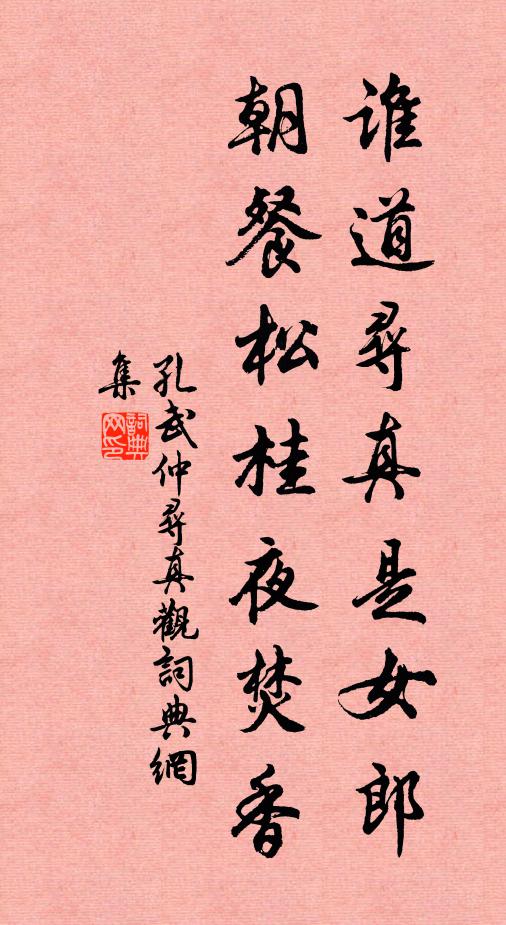 谁道尋真是女郎
朝餐松桂夜焚香
孔武仲尋真觀詞典網
集
詞典
网印